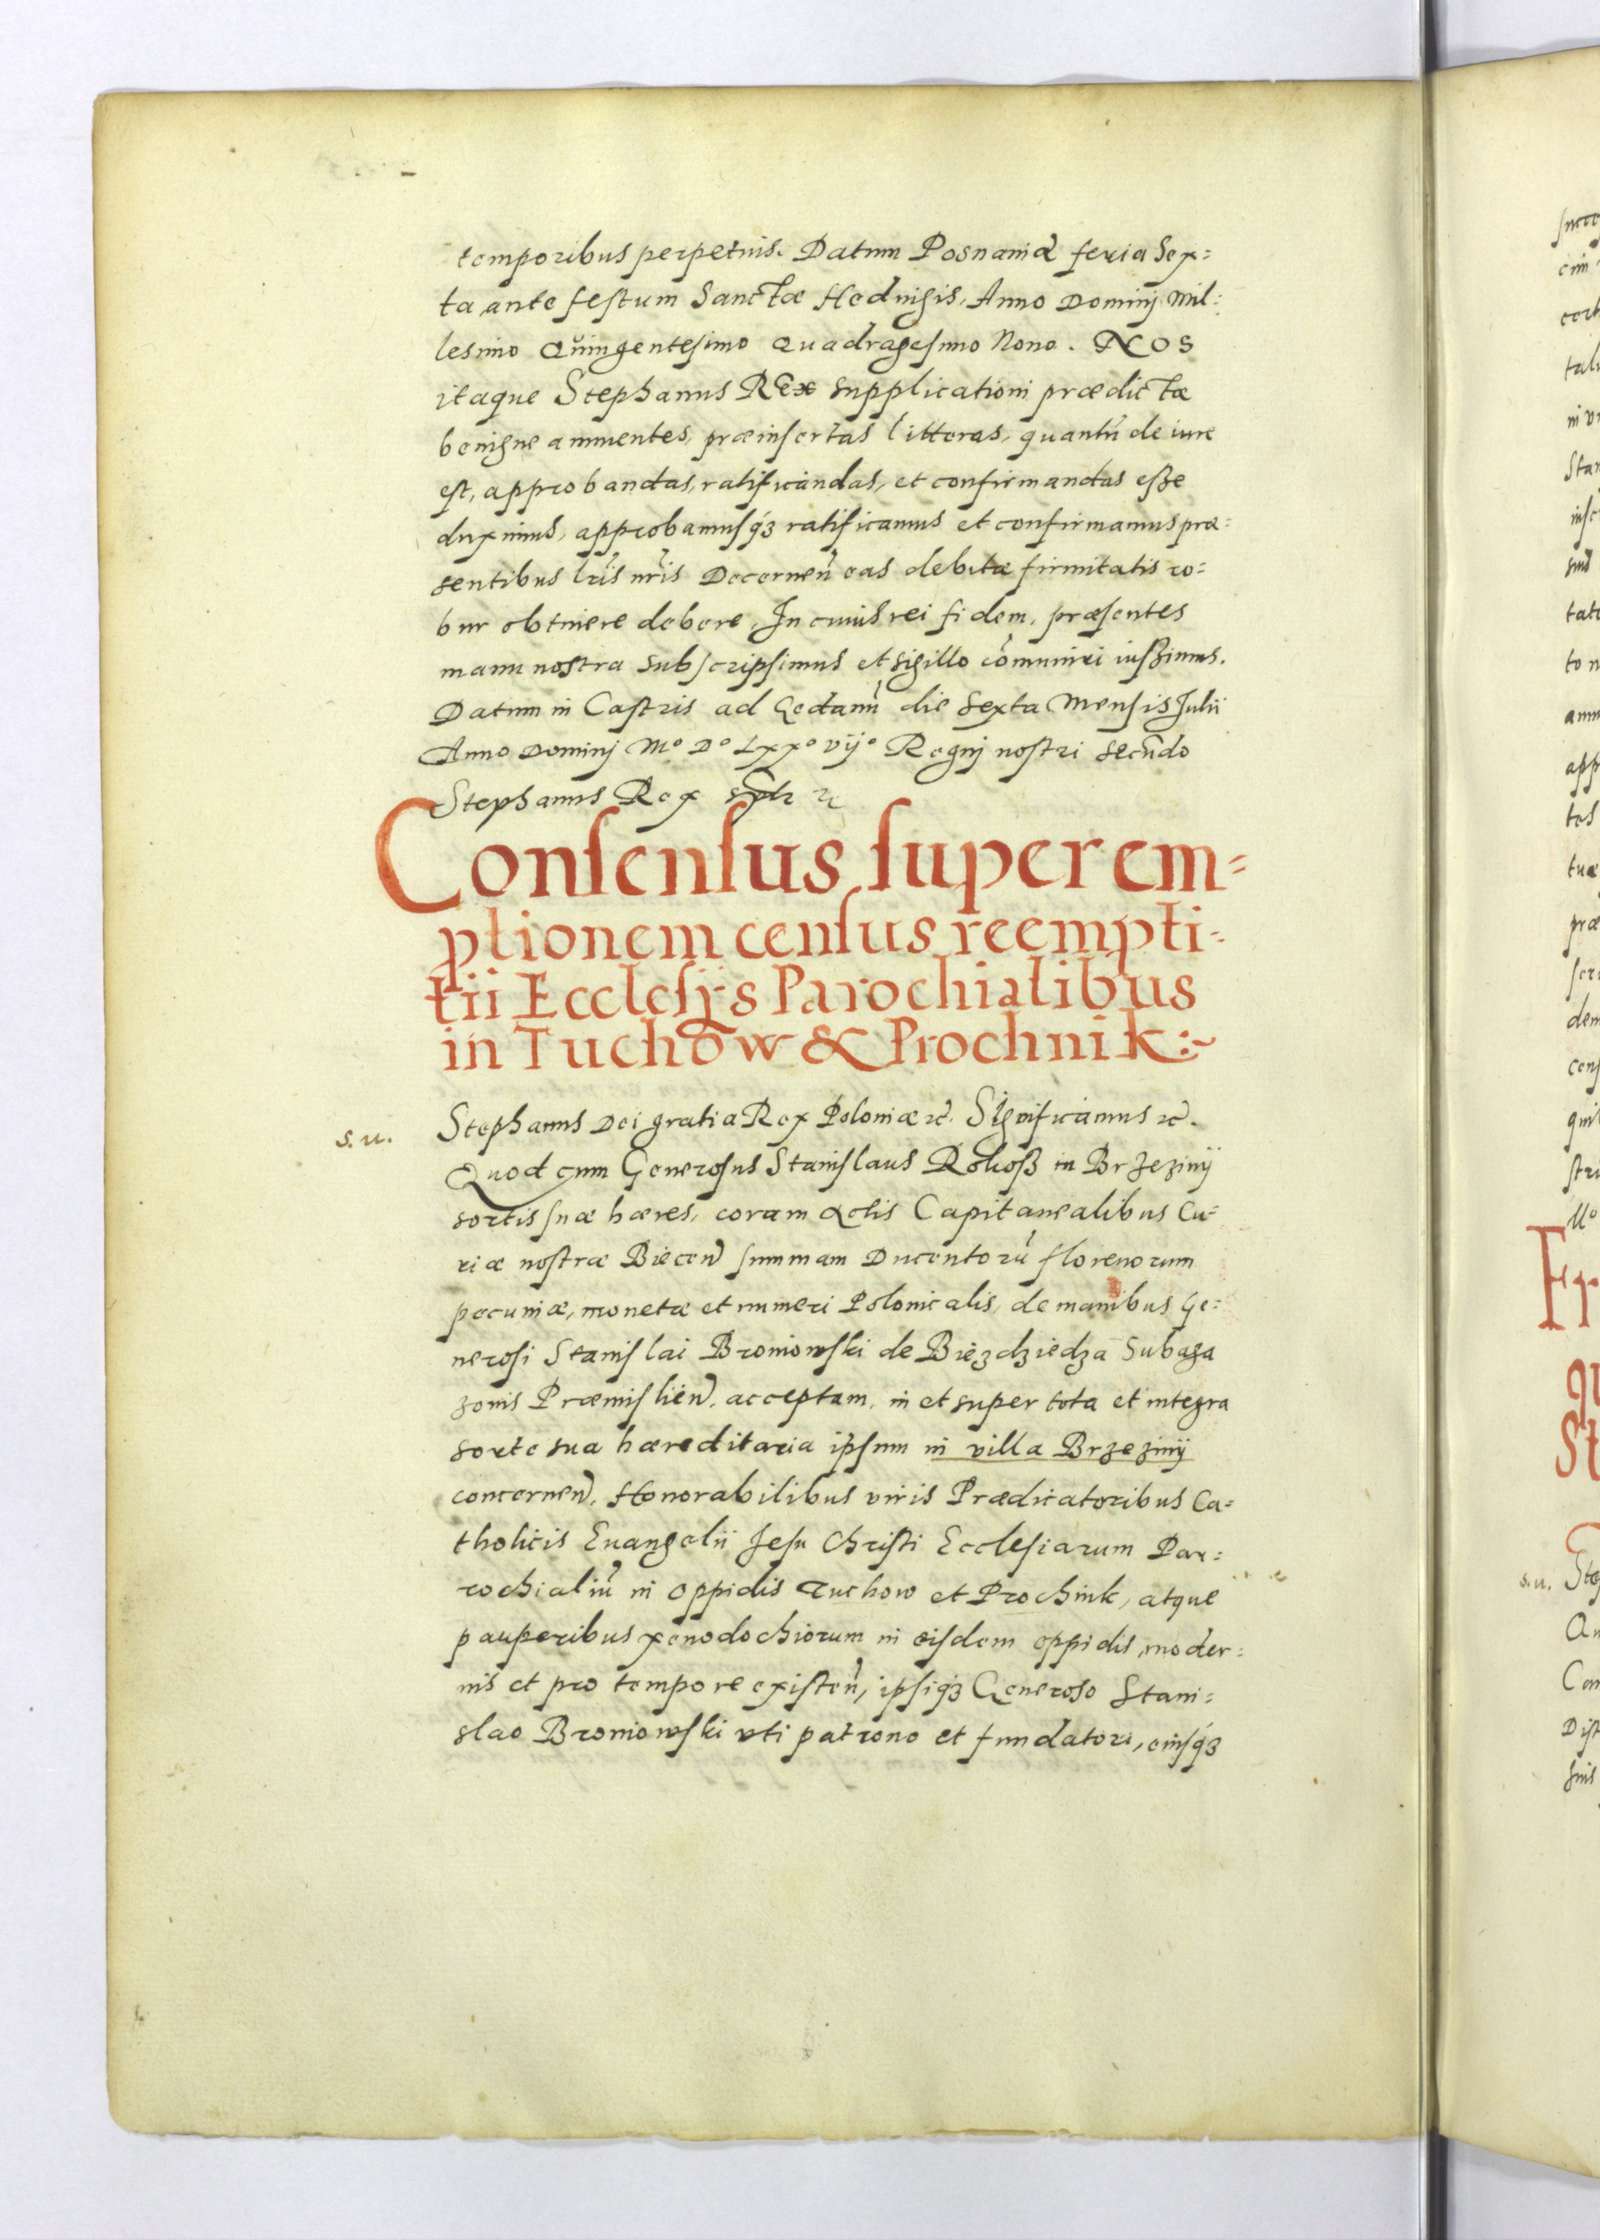 temporibus perpetuis. Datum Posnaniæ feria Sex=
ta ante festum Sanctæ Heduigis, Anno Dominj Mil=
lesimo Quingentesimo Quadragesimo Nono. NOS
itaque Stephanus REX supplicationi prædictæ
benigne annuentes, præinsertas litteras, quantũ de iure
est, approbandas, ratificandas, et confirmandas eße
duximus, approbamusq́ꝫ ratificamus et confirmamus præ=
sentibus lr̃is nr̃is Decernen̄ eas debitæ firmitatis ro=
bur obtinere debere, In cuius rei fidem, præsentes
manu nostra subscripsimus et sigillo com̃uniri iußimus.
Datum in Castris ad Gedanũ die Sexta Mensis Julii
Anno Dominj Mº Dº Lxxº vijº Regnj nostri secũdo
Stephanus Rex
Consensus super em=
ptionem census reempti-
tii Ecclesijs Parochialibus
in Tuchow & Prochnik:~
s. u.
Stephanus Dei gratia Rex Poloniæ ꝛc. Significamus ꝛc.
Quod cum Generosus Stanislaus Rokoß in Brzezinij
sortis suæ hæres, coram Actis Capitanealibus Cu=
riæ nostræ Biecen̄ summam Ducentorũ florenorum
pecuniæ, monetæ et numeri Polonicalis, de manibus Ge=
nerosi Stanislai Broniowski de Biezdziedza Subaga
zonis Præmislien̄. acceptam, in et super tota et integra
sorte sua hæreditaria ipsum in villa Brzezinij
concernen̄. Honorabilibus viris Prædicatoribus Ca=
tholicis Euangelii Jesu Christi Ecclesiarum Par=
rochialiũ in oppidis Tuchow et Prochnik, atque
pauperibus xenodochiorum in eisdem oppidis, moder=
nis et pro tempore existen̄, ipsiq́ꝫ Generoso Stani=
slao Broniowski uti patrono et fundatori, eiusq́ꝫ